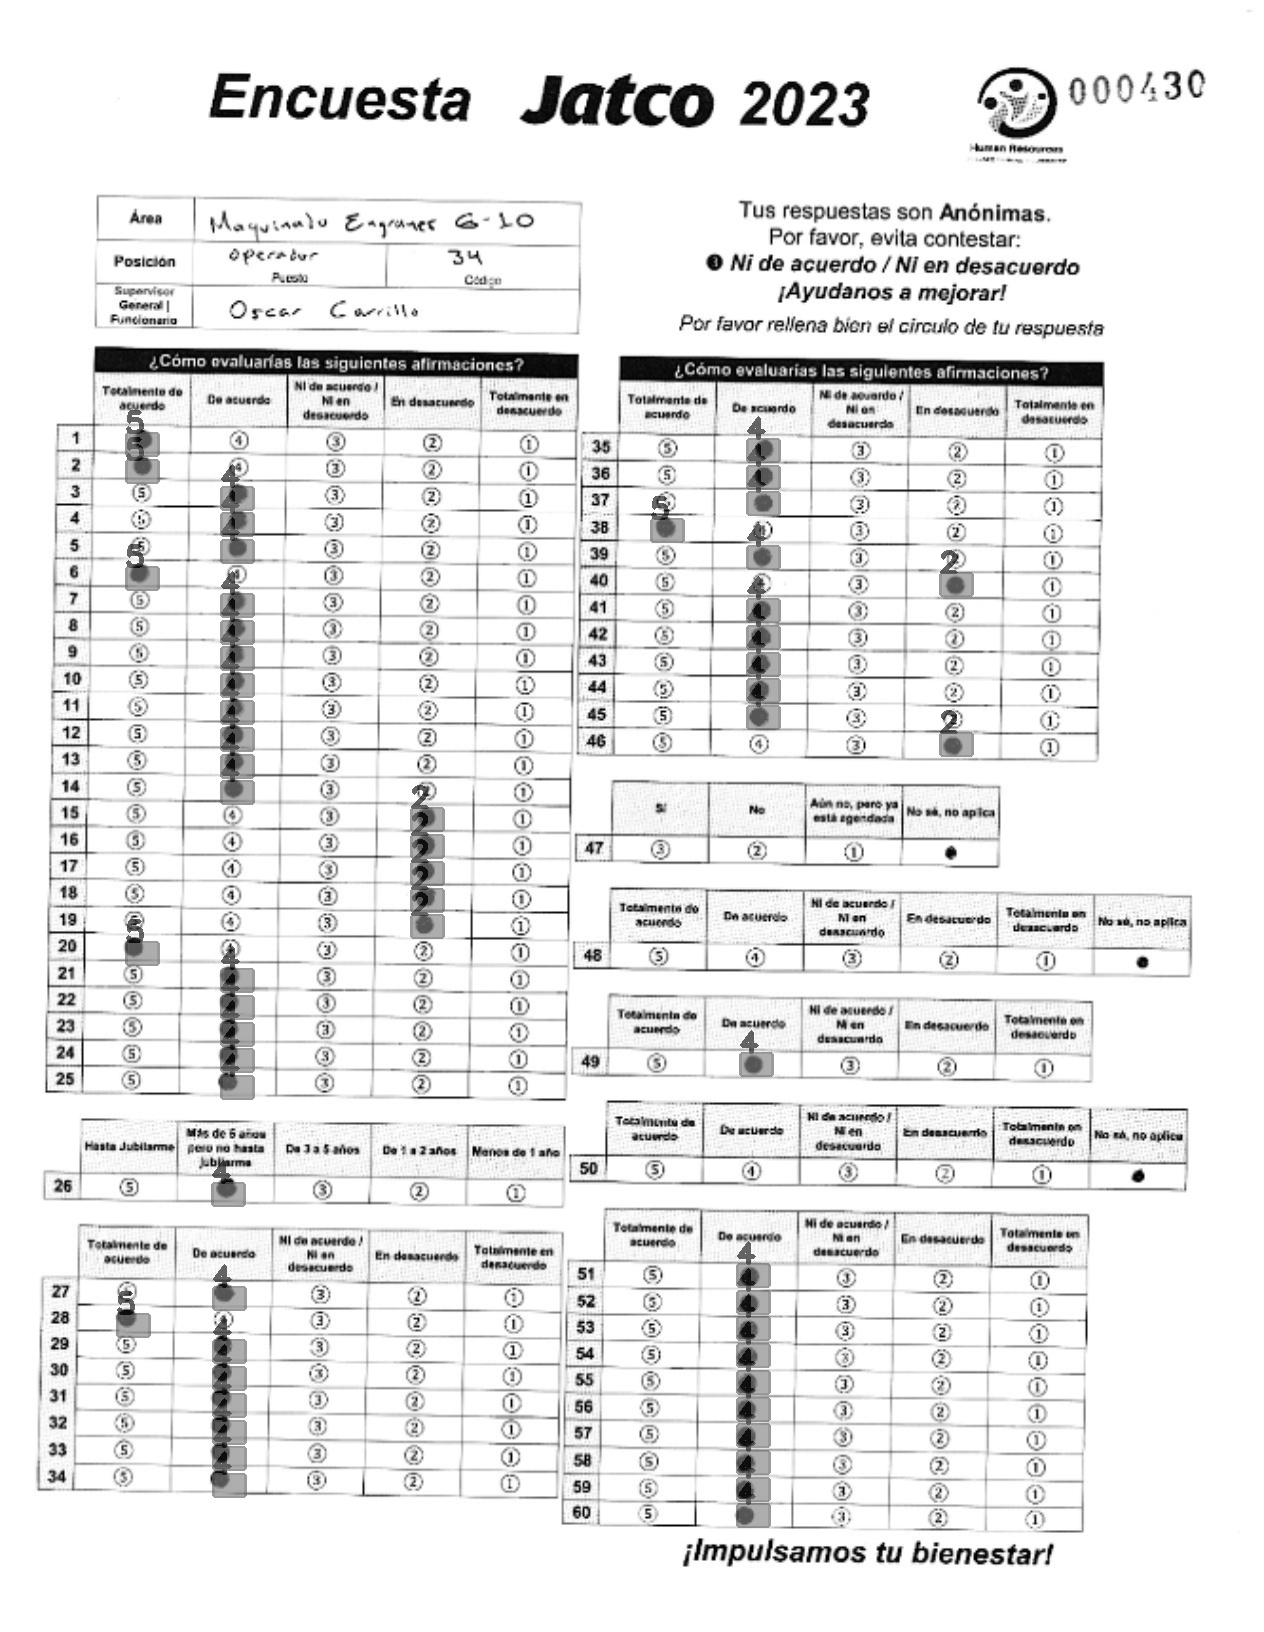 Encuesta Jatco 2023
Human Resources
000430
Área Maquinado Engranes G-10
Posición Operador 34
Puesto Código
Supervisor General | Funcionario Oscar Carrillo
Tus respuestas son Anónimas.
Por favor, evita contestar:
❸ Ni de acuerdo / Ni en desacuerdo
¡Ayudanos a mejorar!
Por favor rellena bien el circulo de tu respuesta
¿Cómo evaluarías las siguientes afirmaciones?
Totalmente de acuerdo De acuerdo Ni de acuerdo / Ni en desacuerdo En desacuerdo Totalmente en desacuerdo
1 5 4 3 2 1
2 5 4 3 2 1
3 5 4 3 2 1
4 5 4 3 2 1
5 5 4 3 2 1
6 5 4 3 2 1
7 5 4 3 2 1
8 5 4 3 2 1
9 5 4 3 2 1
10 5 4 3 2 1
11 5 4 3 2 1
12 5 4 3 2 1
13 5 4 3 2 1
14 5 4 3 2 1
15 5 4 3 2 1
16 5 4 3 2 1
17 5 4 3 2 1
18 5 4 3 2 1
19 5 4 3 2 1
20 5 4 3 2 1
21 5 4 3 2 1
22 5 4 3 2 1
23 5 4 3 2 1
24 5 4 3 2 1
25 5 4 3 2 1
Hasta Jubilarme Más de 5 años pero no hasta jubilarme De 3 a 5 años De 1 a 2 años Menos de 1 año
26 5 4 3 2 1
Totalmente de acuerdo De acuerdo Ni de acuerdo / Ni en desacuerdo En desacuerdo Totalmente en desacuerdo
27 5 4 3 2 1
28 5 4 3 2 1
29 5 4 3 2 1
30 5 4 3 2 1
31 5 4 3 2 1
32 5 4 3 2 1
33 5 4 3 2 1
34 5 4 3 2 1
¿Cómo evaluarías las siguientes afirmaciones?
Totalmente de acuerdo De acuerdo Ni de acuerdo / Ni en desacuerdo En desacuerdo Totalmente en desacuerdo
35 5 4 3 2 1
36 5 4 3 2 1
37 5 4 3 2 1
38 5 4 3 2 1
39 5 4 3 2 1
40 5 4 3 2 1
41 5 4 3 2 1
42 5 4 3 2 1
43 5 4 3 2 1
44 5 4 3 2 1
45 5 4 3 2 1
46 5 4 3 2 1
Sí No Aún no, pero ya está agendada No sé, no aplica
47 3 2 1
Totalmente de acuerdo De acuerdo Ni de acuerdo / Ni en desacuerdo En desacuerdo Totalmente en desacuerdo No sé, no aplica
48 5 4 3 2 1
Totalmente de acuerdo De acuerdo Ni de acuerdo / Ni en desacuerdo En desacuerdo Totalmente en desacuerdo
49 5 4 3 2 1
Totalmente de acuerdo De acuerdo Ni de acuerdo / Ni en desacuerdo En desacuerdo Totalmente en desacuerdo No sé, no aplica
50 5 4 3 2 1
Totalmente de acuerdo De acuerdo Ni de acuerdo / Ni en desacuerdo En desacuerdo Totalmente en desacuerdo
51 5 4 3 2 1
52 5 4 3 2 1
53 5 4 3 2 1
54 5 4 3 2 1
55 5 4 3 2 1
56 5 4 3 2 1
57 5 4 3 2 1
58 5 4 3 2 1
59 5 4 3 2 1
60 5 4 3 2 1
¡Impulsamos tu bienestar!